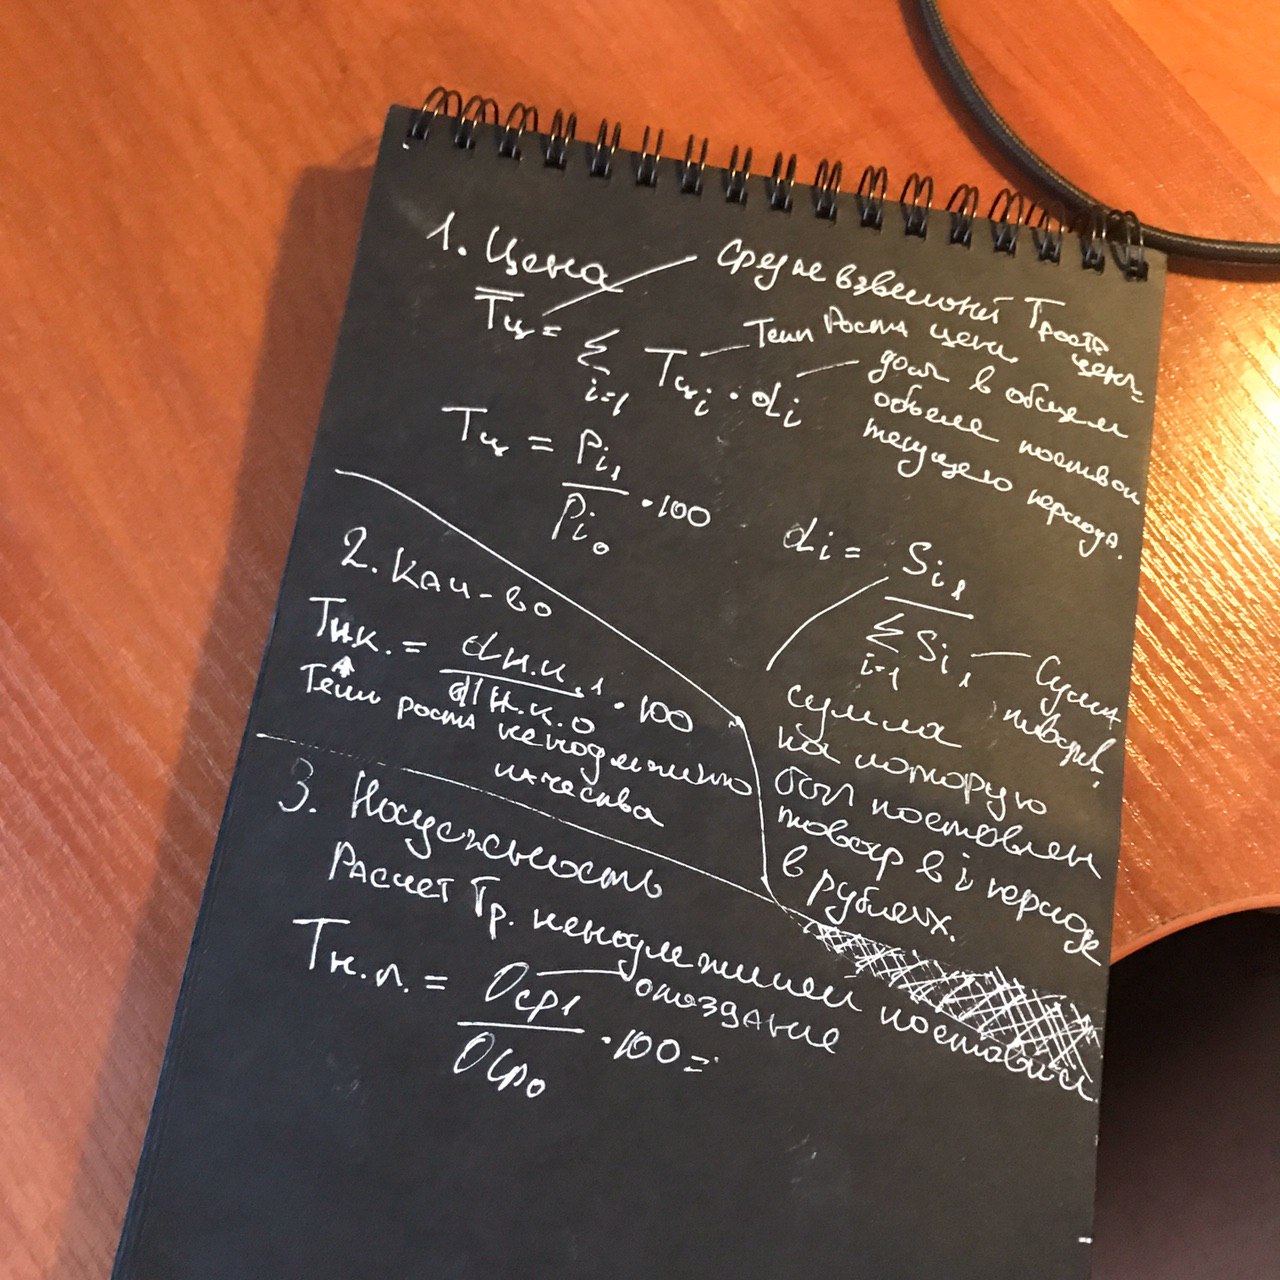 1. Цена
средне взвешенный Троста цены
T̅ц = Σ i=1 Tцi · di
Темп Роста цены
доля в общем
объеме поставок
текущего периода.
Tц = Pi1 / Pi0 · 100
di = Si1 / Σ i=1 Si1
Сумма
товаров
сумма
на которую
был поставлен
товар в i периоде
в рублях.
2. Кач-во
Tн.к. = dн.к.1 / dн.к.0 · 100
Темп роста ненадлежащего
качества
3. Надежность
Расчет Тр. ненадлежащей поставки
Tн.п. = Оср1 / Оср0 · 100 =
опоздание